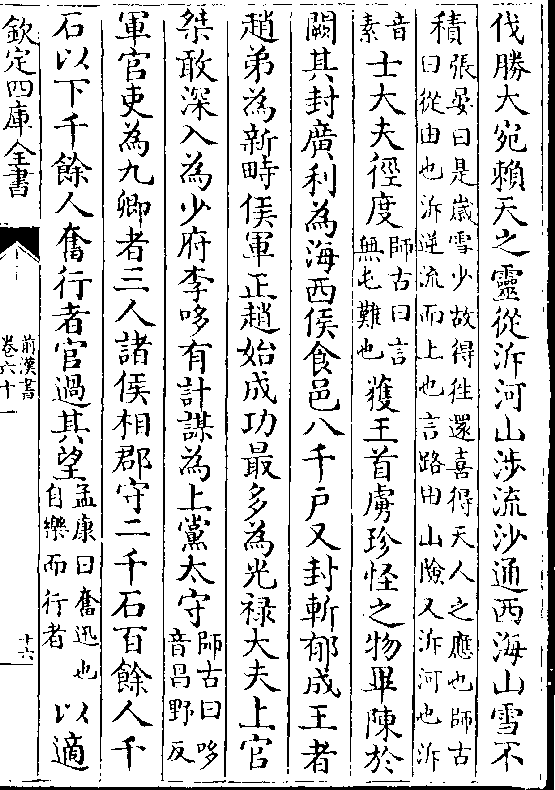 伐勝大宛賴天之靈從泝河山涉流沙通西海山雪不
積張晏曰是嵗雪少故得徃還喜得天人之應也師古曰從由也泝逆流而上也言路由山險又泝河也泝
音素士大夫徑度師古曰言無屯難也獲王首虜珍怪之物畢陳於
闕其封廣利為海西侯食邑八千戶又封斬郁成王者
趙弟為新畤侯軍正趙始成功最多為光禄大夫上官
桀敢深入為少府李哆有計謀為上黨太守師古曰哆音昌野反
軍官吏為九卿者三人諸侯相郡守二千石百餘人千
石以下千餘人奮行者官過其望孟康曰奮迅也自樂而行者以適
欽定四庫全書
前漢書
卷六十一
十六